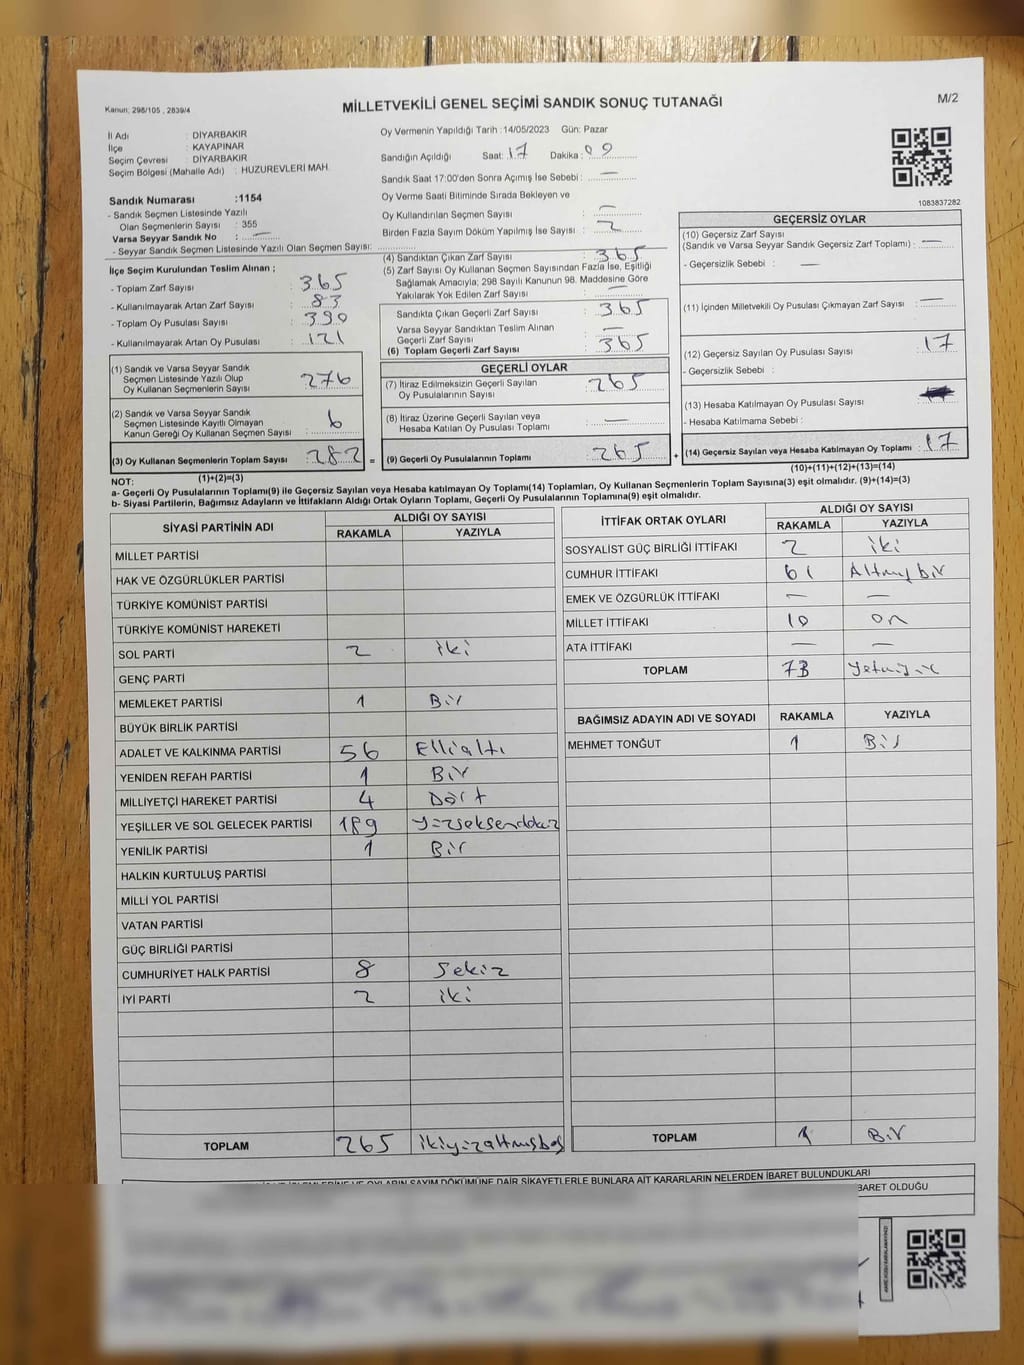 Kanun; 298/105 , 2839/4
MİLLETVEKİLİ GENEL SEÇİMİ SANDIK SONUÇ TUTANAĞI
M/2
İl Adı : DİYARBAKIR
İlçe : KAYAPINAR
Seçim Çevresi : DİYARBAKIR
Seçim Bölgesi (Mahalle Adı) : HUZUREVLERİ MAH.
Oy Vermenin Yapıldığı Tarih :14/05/2023 Gün: Pazar
Sandığın Açıldığı Saat: 17 Dakika: 09
Sandık Saat 17:00'den Sonra Açımış İse Sebebi : —
Oy Verme Saati Bitiminde Sırada Bekleyen ve
Oy Kullandırılan Seçmen Sayısı : —
Birden Fazla Sayım Döküm Yapılmış İse Sayısı : 2
1083837282
Sandık Numarası :1154
- Sandık Seçmen Listesinde Yazılı
Olan Seçmenlerin Sayısı : 355
Varsa Seyyar Sandık No : —
- Seyyar Sandık Seçmen Listesinde Yazılı Olan Seçmen Sayısı:
İlçe Seçim Kurulundan Teslim Alınan ;
- Toplam Zarf Sayısı : 365
- Kullanılmayarak Artan Zarf Sayısı : 83
- Toplam Oy Pusulası Sayısı : 390
- Kullanılmayarak Artan Oy Pusulası : 121
(1) Sandık ve Varsa Seyyar Sandık
Seçmen Listesinde Yazılı Olup
Oy Kullanan Seçmenlerin Sayısı : 276
(2) Sandık ve Varsa Seyyar Sandık
Seçmen Listesinde Kayıtlı Olmayan
Kanun Gereği Oy Kullanan Seçmen Sayısı : 6
(3) Oy Kullanan Seçmenlerin Toplam Sayısı : 282
(1)+(2)=(3)
(4) Sandıktan Çıkan Zarf Sayısı : 365
(5) Zarf Sayısı Oy Kullanan Seçmen Sayısından Fazla İse, Eşitliği
Sağlamak Amacıyla; 298 Sayılı Kanunun 98. Maddesine Göre
Yakılarak Yok Edilen Zarf Sayısı : —
Sandıkta Çıkan Geçerli Zarf Sayısı : 365
Varsa Seyyar Sandıktan Teslim Alınan
Geçerli Zarf Sayısı : —
(6) Toplam Geçerli Zarf Sayısı : 365
GEÇERLİ OYLAR
(7) İtiraz Edilmeksizin Geçerli Sayılan
Oy Pusulalarının Sayısı : 265
(8) İtiraz Üzerine Geçerli Sayılan veya
Hesaba Katılan Oy Pusulası Toplamı : —
= (9) Geçerli Oy Pusulalarının Toplamı : 265 +
GEÇERSİZ OYLAR
(10) Geçersiz Zarf Sayısı
(Sandık ve Varsa Seyyar Sandık Geçersiz Zarf Toplamı) : —
- Geçersizlik Sebebi : —
(11) İçinden Milletvekili Oy Pusulası Çıkmayan Zarf Sayısı : —
(12) Geçersiz Sayılan Oy Pusulası Sayısı : 17
- Geçersizlik Sebebi :
(13) Hesaba Katılmayan Oy Pusulası Sayısı :
- Hesaba Katılmama Sebebi :
(14) Geçersiz Sayılan veya Hesaba Katılmayan Oy Toplamı : 17
(10)+(11)+(12)+(13)=(14)
NOT:
a- Geçerli Oy Pusulalarının Toplamı(9) ile Geçersiz Sayılan veya Hesaba katılmayan Oy Toplamı(14) Toplamları, Oy Kullanan Seçmenlerin Toplam Sayısına(3) eşit olmalıdır. (9)+(14)=(3)
b- Siyasi Partilerin, Bağımsız Adayların ve İttifakların Aldığı Ortak Oyların Toplamı, Geçerli Oy Pusulalarının Toplamına(9) eşit olmalıdır.
SİYASİ PARTİNİN ADI ALDIĞI OY SAYISI
RAKAMLA YAZIYLA
MİLLET PARTİSİ
HAK VE ÖZGÜRLÜKLER PARTİSİ
TÜRKİYE KOMÜNİST PARTİSİ
TÜRKİYE KOMÜNİST HAREKETİ
SOL PARTİ 2 iki
GENÇ PARTİ
MEMLEKET PARTİSİ 1 Bir
BÜYÜK BİRLİK PARTİSİ
ADALET VE KALKINMA PARTİSİ 56 Ellialtı
YENİDEN REFAH PARTİSİ 1 Bir
MİLLİYETÇİ HAREKET PARTİSİ 4 Dört
YEŞİLLER VE SOL GELECEK PARTİSİ 189 Yüzseksendokuz
YENİLİK PARTİSİ 1 Bir
HALKIN KURTULUŞ PARTİSİ
MİLLİ YOL PARTİSİ
VATAN PARTİSİ
GÜÇ BİRLİĞİ PARTİSİ
CUMHURİYET HALK PARTİSİ 8 Sekiz
İYİ PARTİ 2 iki
TOPLAM 265 ikiyüzaltmışbeş
İTTİFAK ORTAK OYLARI ALDIĞI OY SAYISI
RAKAMLA YAZIYLA
SOSYALİST GÜÇ BİRLİĞİ İTTİFAKI 2 iki
CUMHUR İTTİFAKI 61 Altmışbir
EMEK VE ÖZGÜRLÜK İTTİFAKI — —
MİLLET İTTİFAKI 10 on
ATA İTTİFAKI — —
TOPLAM 73
BAĞIMSIZ ADAYIN ADI VE SOYADI RAKAMLA YAZIYLA
MEHMET TONĞUT 1 Bir
TOPLAM 1 Bir
OYLARIN SAYIM DÖKÜMÜNE DAİR ŞİKAYETLERLE BUNLARA AİT KARARLARIN NELERDEN İBARET BULUNDUKLARI
BARET OLDUĞU